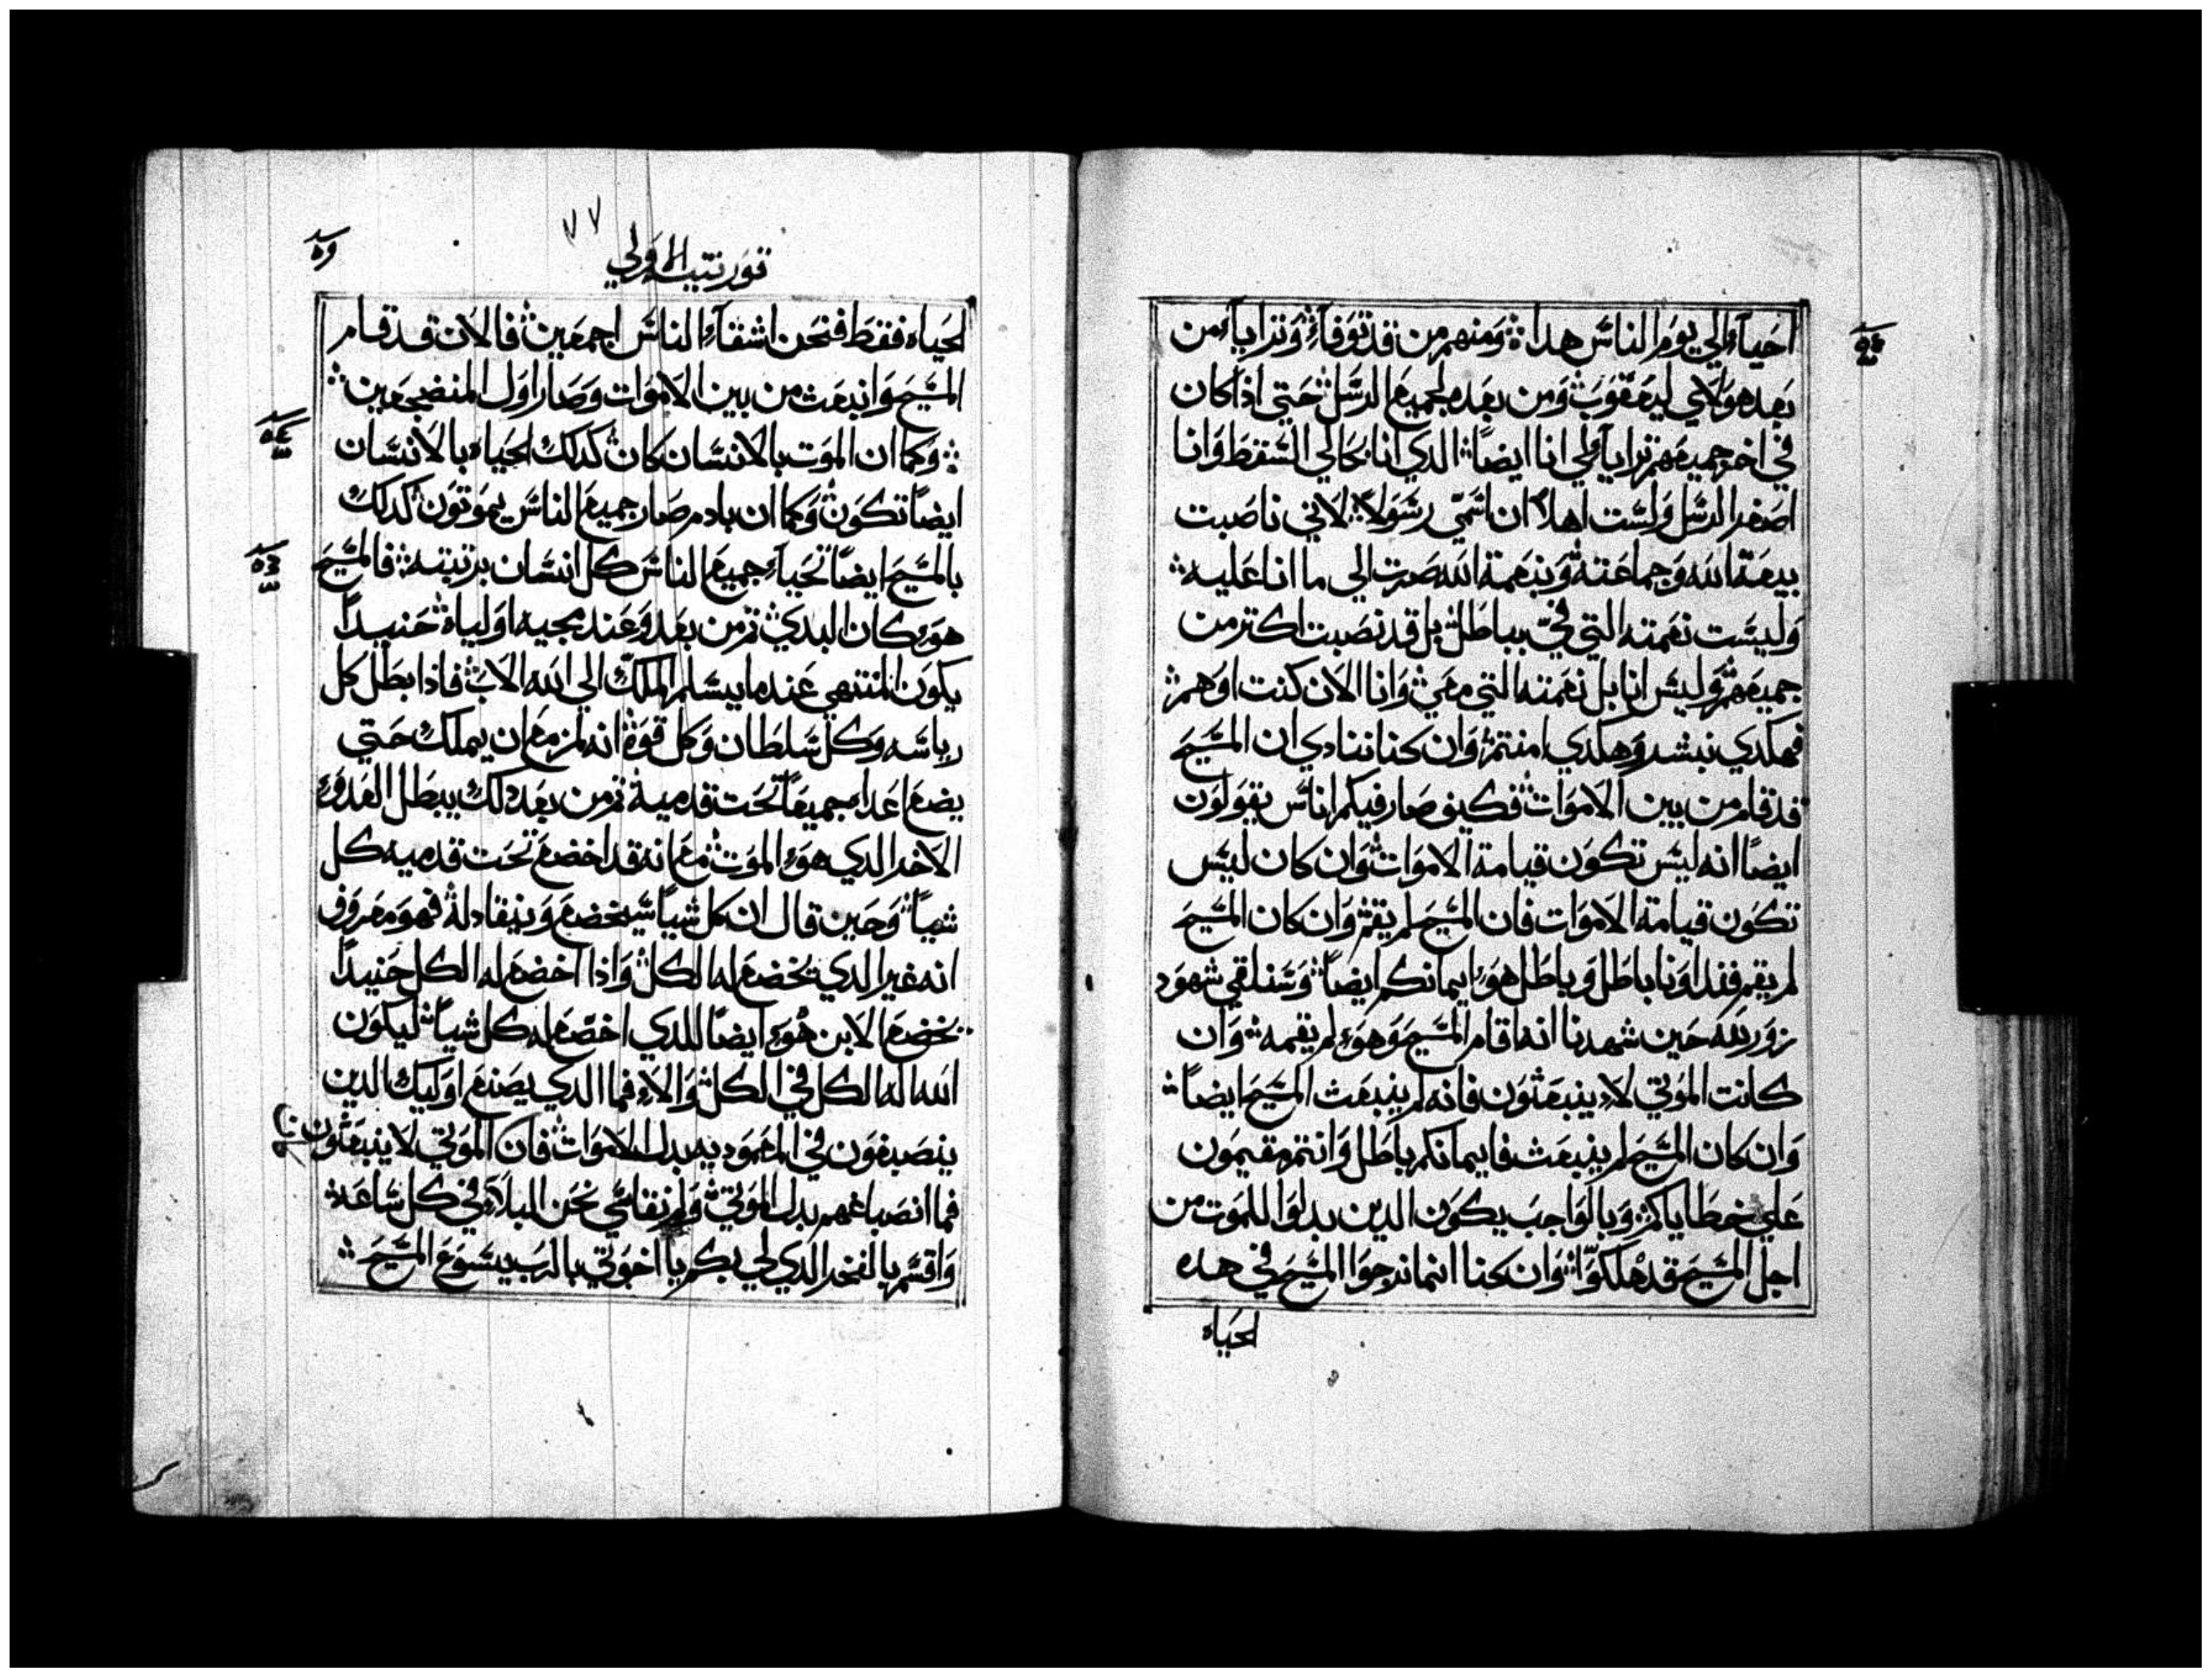 احيآء والي يوم الناس هدا ومنهم من قد توفاء وترايآء من
بعد هولاي ليعقوب ومن بعده لجميع الرسل حتي اذا كان
في اخر جميعهم ترايآء لي انا ايضاً الدي انا بحالي السقط وانا
اصغر الرسل ولست اهلاً ان اسمي رسولاً لاني ناصبت
بيعة الله وجماعته وبنعمة الله صرت الي ما انا عليه
وليست نعمته التي فيّ بباطل بل قد نصبت اكتر من
جميعهم وليس انا بل نعمته التي معي وانا الان كنت اوهم
فهكدي نبشر وهكدي امنتم وان كنا ننادي ان المسيح
قد قام من بين الاموات فكيف صار فيكم اناس يقولون
ايضاً انه ليس تكون قيامة الاموات وان كان ليس
تكون قيامة الاموات فان المسيح لم يقم وان كان المسيح
لم يقم فنداونا باطل وباطل هو ايمانكم ايضاً وسنلقي شهود
زور لله حين شهدنا انه اقام المسيح وهو لم يقمه وان
كانت الموتي لا ينبعثون فانه لم ينبعث المسيح ايضاً
وان كان المسيح لم ينبعث فايمانكم باطل وانتم مقيمون
علي خطاياكم وبالواجب يكون الدين بدلوا للموت من
اجل المسيح قد هلكوا وان كنا انما نرجوا المسيح في هده
الحياه
٧٧
قورنتيه الاولي
الحياه فقط فنحن اشقآء الناس اجمعين فالان قد قام
المسيح وانبعث من بين الاموات وصار اول المنضجعين
وكما ان الموت بالانسان كان كدلك الحياه بالانسان
ايضاً تكون وكما ان بادم صار جميع الناس يموتون كدلك
بالمسيح ايضاً تحياء جميع الناس كل انسان برتبته فالمسيح
هو كان البدي تم من بعد وعند مجيه اولياه حنيداً
يكون المنتهي عندما يسلم الملك الي الله الاب فاذا بطل كل
رياسه وكل سلطان وكل قوة انه لمزمع ان يملك حتي
يضع اعداه جميعاً تحت قدميه تم من بعد دلك يبطل العدو
الاخر الدي هو الموت مع انه قد اخضع تحت قدميه كل
شياً وحين قال ان كل شياً سيخضع وينقاد له فهو معروف
انه غير الدي يخضع له الكل واذا اخضع له الكل حنيداً
يخضع الابن هو ايضاً للدي اخضع له كل شياً ليكون
الله اله الكل في الكل والا فما الدي يصنع اوليك الدين
ينصبغون في المعموديه بدل الاموات فان الموتي لا ينبعثون
فما انصباغهم بدل الموتي ولم نقاسي نحن البلاء في كل ساعه
واقسم بالفخر الدي لي بكم يا اخوتي بالرب يسوع المسيح